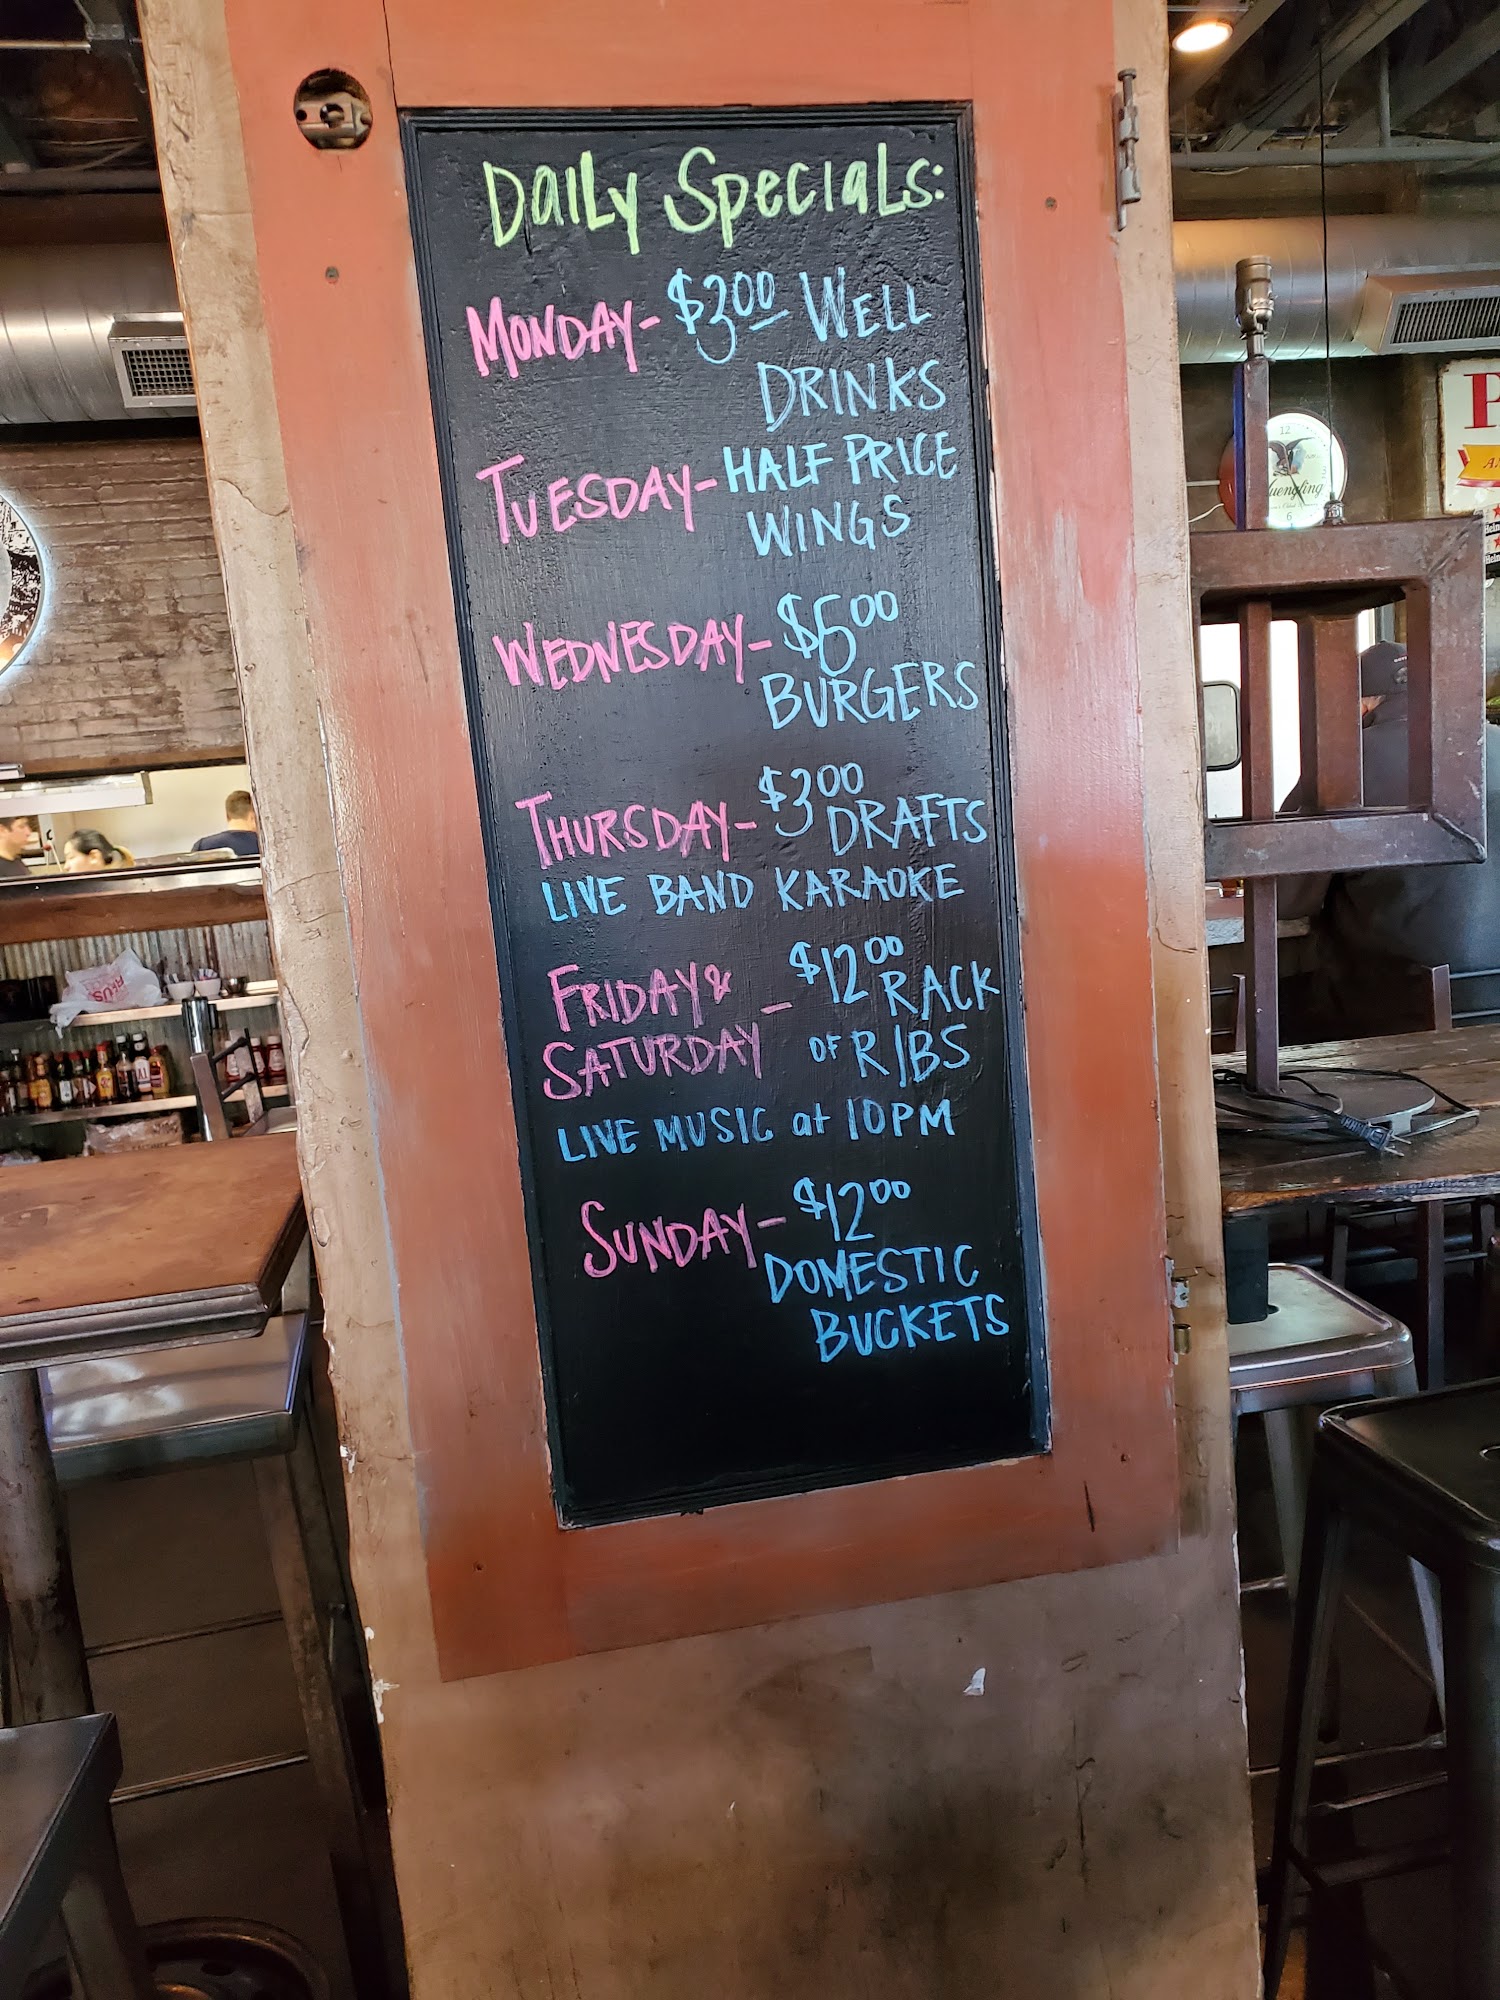 Daily Specials:
Monday- $3.00 Well
Drinks
Tuesday- Half Price
Wings
Wednesday- $6.00
Burgers
Thursday- $3.00
Drafts
Live Band Karaoke
Friday & - $12.00 Rack
Saturday of Ribs
Live Music at 10PM
Sunday- $12.00
Domestic
Buckets
12
uengling
6